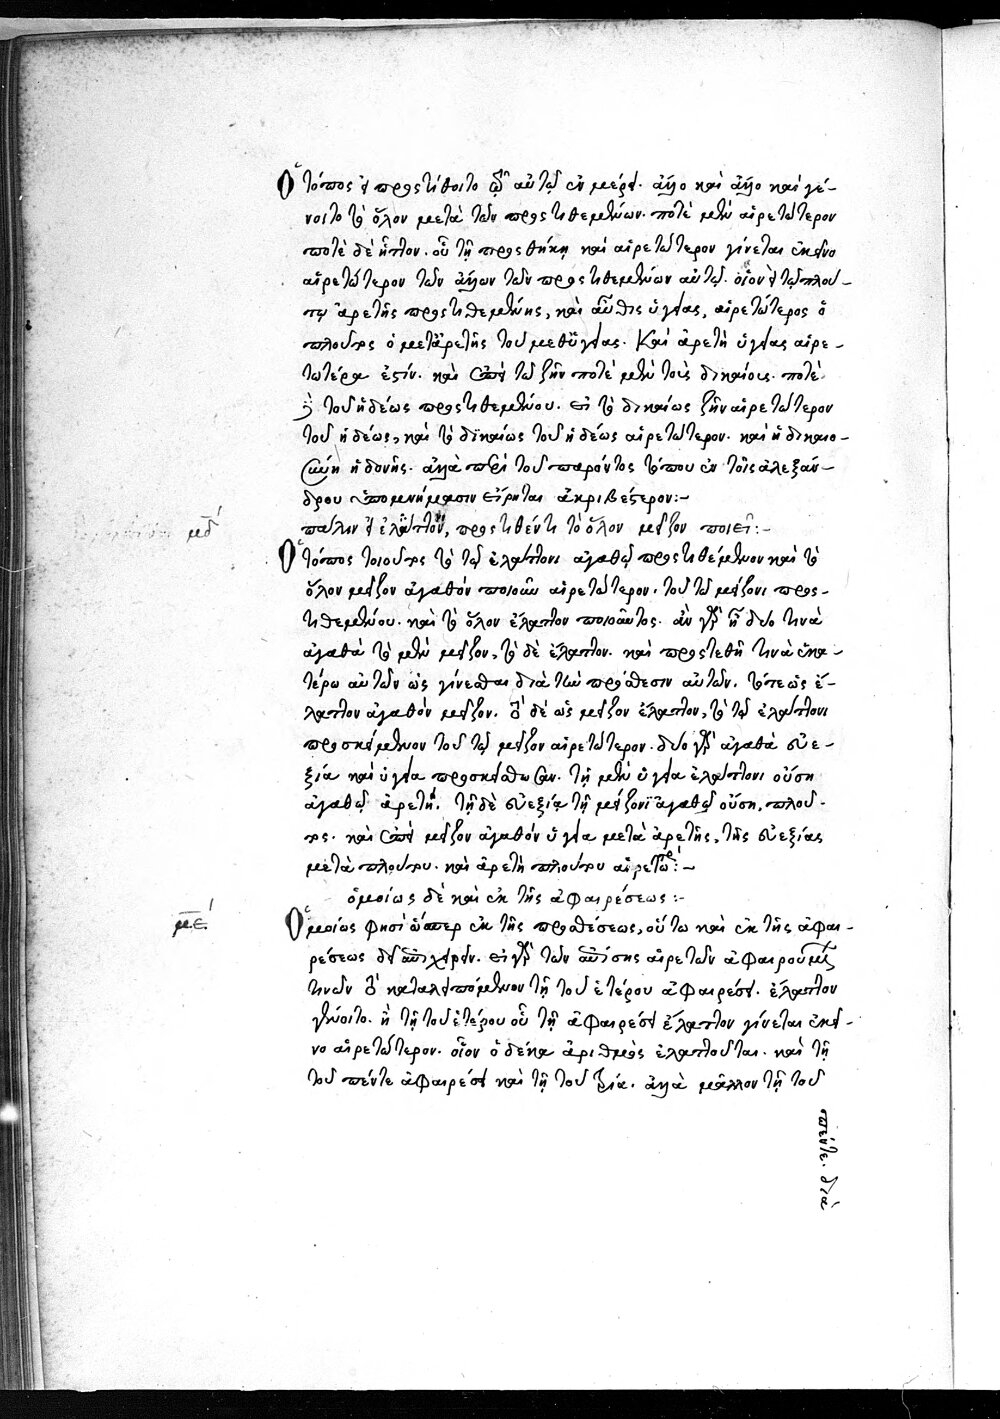 Ὁ τόπος εἰ προστίθοιτο τῷ αὐτῷ ἐν μέρει. ἄλλο καὶ ἄλλο καὶ γέ-
νοιτο τὸ ὅλον μετὰ τῶν προστιθεμένων. ποτὲ μὲν αἱρετώτερον
ποτὲ δὲ ἧττον. οὗ τῇ προσθήκῃ καὶ αἱρετώτερον γίνεται ἐκεῖνο
αἱρετώτερον τῶν ἄλλων τῶν προστιθεμένων αὐτῷ. οἷον εἰ τῷ πλού-
τῳ ἀρετῆς προστιθεμένης, καὶ αὖθις ὑγείας, αἱρετώτερος ὁ
πλοῦτος ὁ μετ' ἀρετῆς τοῦ μεθ' ὑγείας. Καὶ ἀρετὴ ὑγείας αἱρε-
τωτέρα ἐστίν. καὶ ἐπεὶ τῷ ζῆν ποτὲ μὲν τοῦ δικαίως. ποτὲ
δὲ τοῦ ἡδέως προστιθεμένου. εἰ τὸ δικαίως ζῆν αἱρετώτερον
τοῦ ἡδέως, καὶ τὸ δικαίως τοῦ ἡδέως αἱρετώτερον. καὶ ἡ δικαιο-
σύνη ἡδονῆς. ἀλλὰ περὶ τοῦ παρόντος τόπου ἐν τοῖς ἀλεξάν-
δρου ὑπομνήμασιν εἴρηται ἀκριβέστερον:-
μδ´ πάλιν εἰ ἐλάττονι, προστιθέντι τὸ ὅλον μεῖζον ποιεῖ:-
Ὁ τόπος τοιοῦτος τὸ τῷ ἐλάττονι ἀγαθῷ προστιθέμενον καὶ τὸ
ὅλον μεῖζον ἀγαθὸν ποιοῦν αἱρετώτερον. τοῦ τῷ μείζονι προσ-
τιθεμένου. καὶ τὸ ὅλον ἔλαττον ποιοῦντος. ἂν γὰρ ᾖ δύο τινὰ
ἀγαθὰ τὸ μὲν μεῖζον, τὸ δὲ ἔλαττον. καὶ προστεθῇ τινὰ ἑκα-
τέρῳ αὐτῶν ὡς γίνεσθαι διὰ τὴν πρόσθεσιν αὐτῶν. τότε ὡς ἔ-
λαττον ἀγαθὸν μεῖζον. τὸ δὲ ὡς μεῖζον ἔλαττον, τὸ τῷ ἐλάττονι
προσκείμενον τοῦ τῷ μεῖζον αἱρετώτερον. δύο γὰρ ἀγαθὰ εὐε-
ξία καὶ ὑγεία προσκείσθωσαν. τῇ μὲν ὑγεία ἐλάττονι οὔση
ἀγαθῷ ἀρετή. τῇ δὲ εὐεξία τῇ μείζονι ἀγαθῷ οὔση, πλοῦ-
τος. καὶ ἐπεὶ μεῖζον ἀγαθὸν ὑγεία μετὰ ἀρετῆς, τῆς εὐεξίας
μετὰ πλούτου. καὶ ἀρετὴ πλούτου αἱρετω:-
ὁμοίως δὲ καὶ ἐκ τῆς ἀφαιρέσεως:-
με´ Ὁμοίως φησὶ ὥσπερ ἐκ τῆς προσθέσεως, οὕτω καὶ ἐκ τῆς ἀφαι-
ρέσεως δεῖ ἐπιχειρεῖν. εἰ γὰρ τῶν ἐπίσης αἱρετῶν ἀφαιρουμένων
τινῶν τὸ καταλειπόμενον τῇ τοῦ ἑτέρου ἀφαιρέσει. ἔλαττον
γένοιτο. ἢ τῇ τοῦ ἑτέρου οὗ τῇ ἀφαιρέσει ἔλαττον γίνεται ἐκεῖ-
νο αἱρετώτερον. οἷον ὁ δέκα ἀριθμὸς ἐλαττοῦται. καὶ τῇ
τοῦ πέντε ἀφαιρέσει καὶ τῇ τοῦ τρία. ἀλλὰ μᾶλλον τῇ τοῦ
πέντε. διὰ